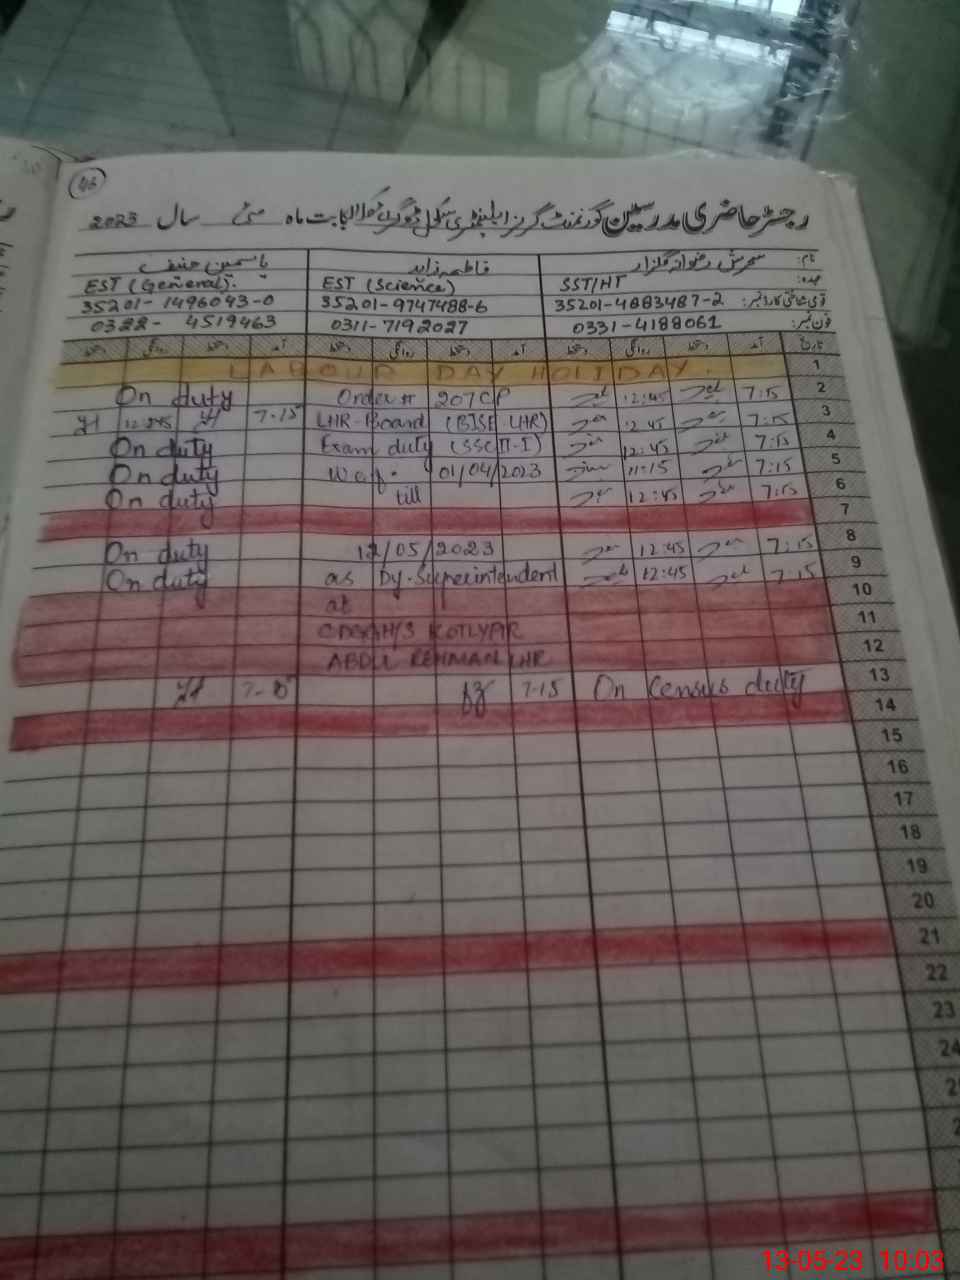 46
رجسٹر حاضری مدرسین گورنمنٹ گرلز ایلیمنٹری سکول بابت ماہ مئی سال 2023
نام: سحرش رضوانہ گلزار فاطمہ زاہد یاسمین حنیف
عہدہ: SST/HT EST (Science) EST (General).
قومی شناختی کارڈ نمبر: 35201-4883487-2 35201-9747488-6 35201-1496043-0
فون نمبر: 0331-4188061 0311-7192027 0322-4519463
تاریخ آمد دستخط روانگی دستخط آمد دستخط روانگی دستخط آمد دستخط روانگی دستخط
LABOUR DAY HOLIDAY. 1
On duty Order # 207CP 12:45 7:15 2
12:45 7-15 LHR-Board (BISE LHR) 12:45 7:15 3
On duty Exam duty (SSC II-I) 12:45 7:15 4
On duty w.e.f. 01/04/2023 11:15 7:15 5
On duty till 12:45 7:15 6
7
On duty 12/05/2023 12:45 7:15 8
On duty as Dy-Superintendent 12:45 7:15 9
at 10
KOTLYAR 11
ABDUL REHMAN LHR 12
7-15 On Census duty 13
14
15
16
17
18
19
20
21
22
23
24
13-05-23 10:03